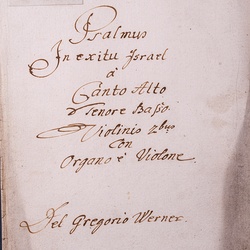 Psalmus
In exitu Israel
à
Canto Alto
Tenore Basso
Violinis 2bus
con
Organo è Violone.
Del Gregorio Werner.